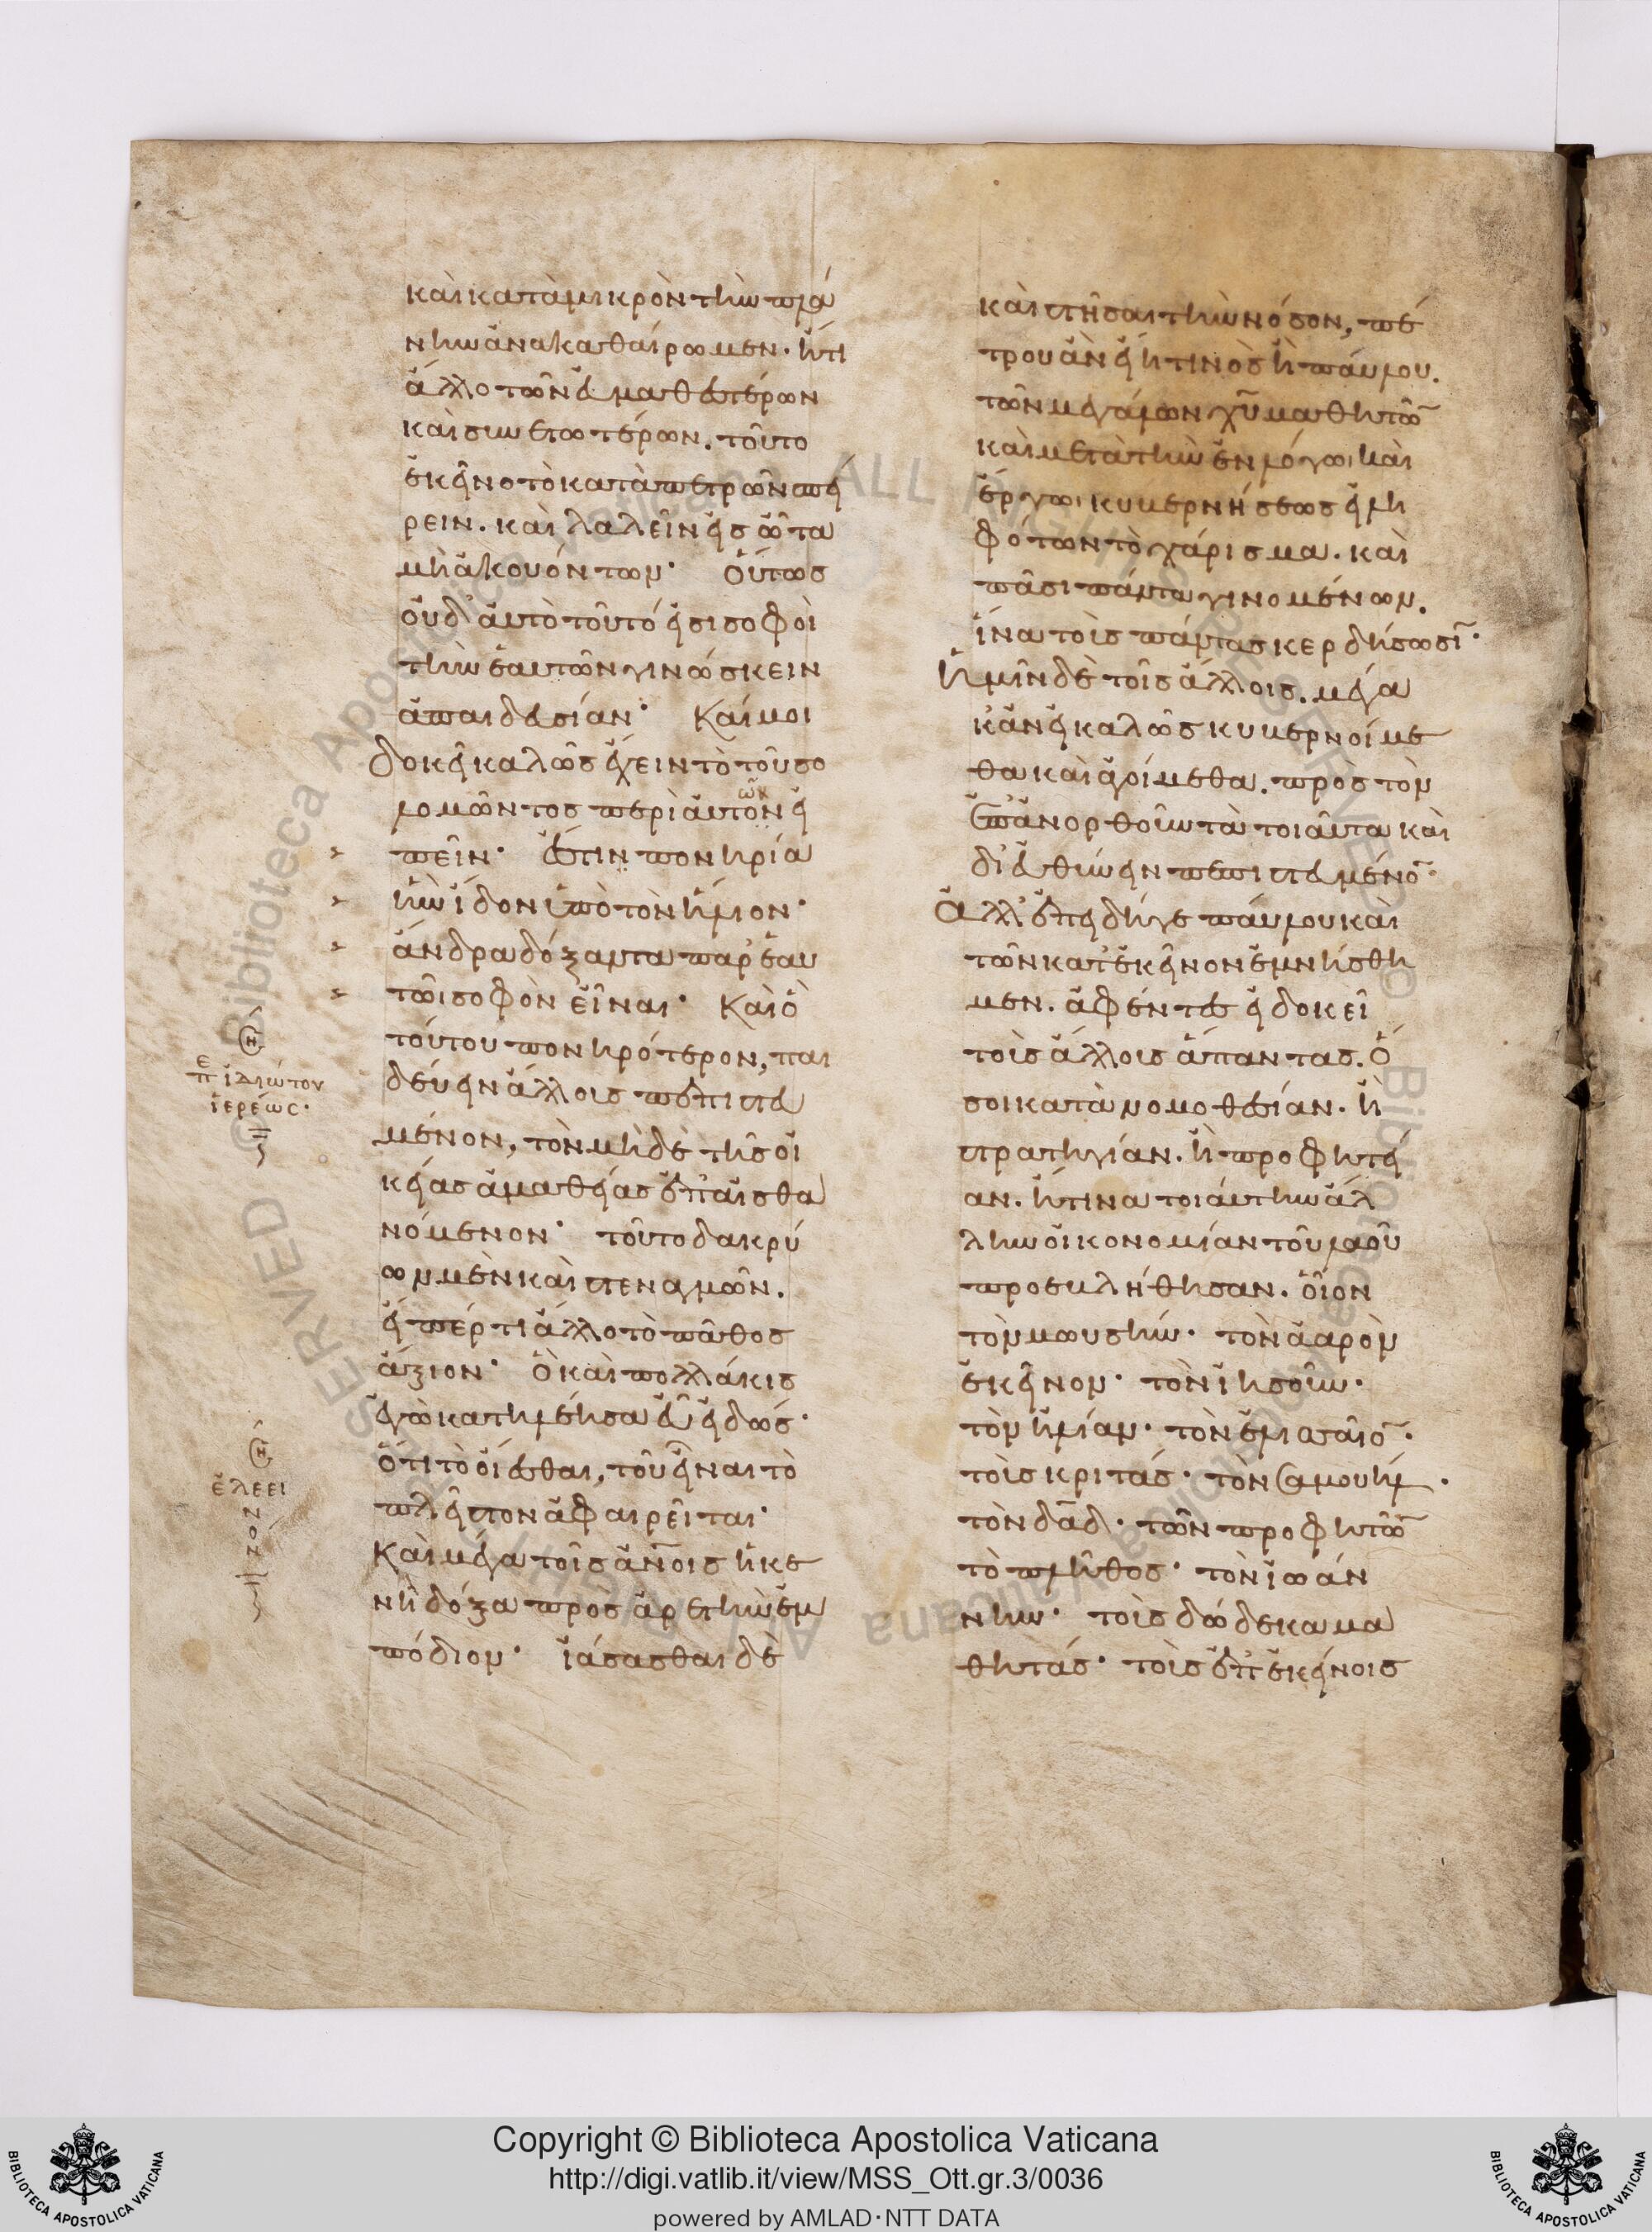 καὶ κατὰ μικρὸν τὴν πλά
νην ἀνακαθαίρωμεν· ἤ τι
ἄλλο τῶν ἀμαθεστέρων
καὶ συνετωτέρων. τοῦτο
ἐκεῖνο τὸ κατὰ πετρῶν σπεί
ρειν. καὶ λαλεῖν εἰς ὦτα
μὴ ἀκουόντων· Οὕτως
οὐδ' αὐτὸ τοῦτό εἰσι σοφοὶ
τὴν ἑαυτῶν γινώσκειν
ἀπαιδευσίαν· Καί μοι
δοκεῖ καλῶς ἔχειν τὸ τοῦ σο
λομῶντος περὶ αὐτῶν εἰ
πεῖν· ἔστιν πονηρία
ἣν ἴδον ὑπὸ τὸν ἥλιον·
ἄνδρα δόξαντα παρ' ἑαυ
τῶι σοφὸν εἶναι· Καὶ ὃ
τούτου πονηρότερον, παι
δεύειν ἄλλοις πεπιστευ
μένον, τὸν μὴ δὲ τῆς οἰ
κείας ἀμαθείας ἐπαισθα
νόμενον· τοῦτο δακρύ
ων μὲν καὶ στεναγμῶν.
εἴπέρ τι ἄλλο τὸ πάθος
ἄξιον· Ὃ καὶ πολλάκις
ἐγὼ κατηλέησα εὖ εἰδώς·
ὅτι τὸ οἴεσθαι, τοῦ εἶναι τὸ
πλεῖστον ἀφαιρεῖται·
Καὶ μέγα τοῖς ἀνοις ἡ κε
νὴ δόξα πρὸς ἀρετὴν ἐμ
πόδιον· ἰάσασθαι δὲ
επ ἰδιώτου
ἱερέως·
ἐλεει
νον
καὶ στῆσαι τὴν νόσον, πέ
τρου ἂν εἴη τινὸς ἢ παύλου.
τῶν μεγάλων χῦ μαθητῶ
καὶ μετὰ τὴν ἐν λόγω, καὶ
ἔργω, κυβερνήσεως εἰλη
φότων τὸ χάρισμα. καὶ
πᾶσι πάντα γινομένων.
ἵνα τοὺς πάντας κερδήσωσι·
Ἡμῖν δὲ τοῖς ἄλλοις. μέγα
κἂν εἰ καλῶς κυβερνοίμε
θα καὶ ἀγοίμεθα. πρὸς τῶν
ἐπανορθοῦν τὰ τοιαῦτα καὶ
διευθύνειν πεπιστευμένω·
Ἀλλ' ἐπειδήγε παύλου καὶ
τῶν κατ' ἐκεῖνον ἐμνήσθη
μεν. ἀφέντες εἰ δοκεῖ
τοὺς ἄλλους ἅπαντας. ὅ
σοι κατὰ νομοθεσίαν. ἢ
στρατηγίαν. ἢ προφητεί
αν. ἤ τινα τοιαύτην ἄλ
λην οἰκονομίαν τοῦ λαοῦ
προεβλήθησαν. οἷον
τὸν μωυσῆν· τὸν ἀαρὼν
ἐκεῖνον· τὸν ἰησοῦν·
τὸν ἠλίαν· τὸν ἐλισσαῖο·
τοὺς κριτάς· τὸν σαμουήλ·
τὸν δαδ· τῶν προφητῶ
τὸ πλῆθος· τὸν ἰωάν
νην· τοὺς δώδεκα μα
θητάς· τοὺς ἐπ' ἐκείνοις
Copyright © Biblioteca Apostolica Vaticana
http://digi.vatlib.it/view/MSS_Ott.gr.3/0036
powered by AMLAD·NTT DATA
BIBLIOTECA APOSTOLICA VATICANA
BIBLIOTECA APOSTOLICA VATICANA